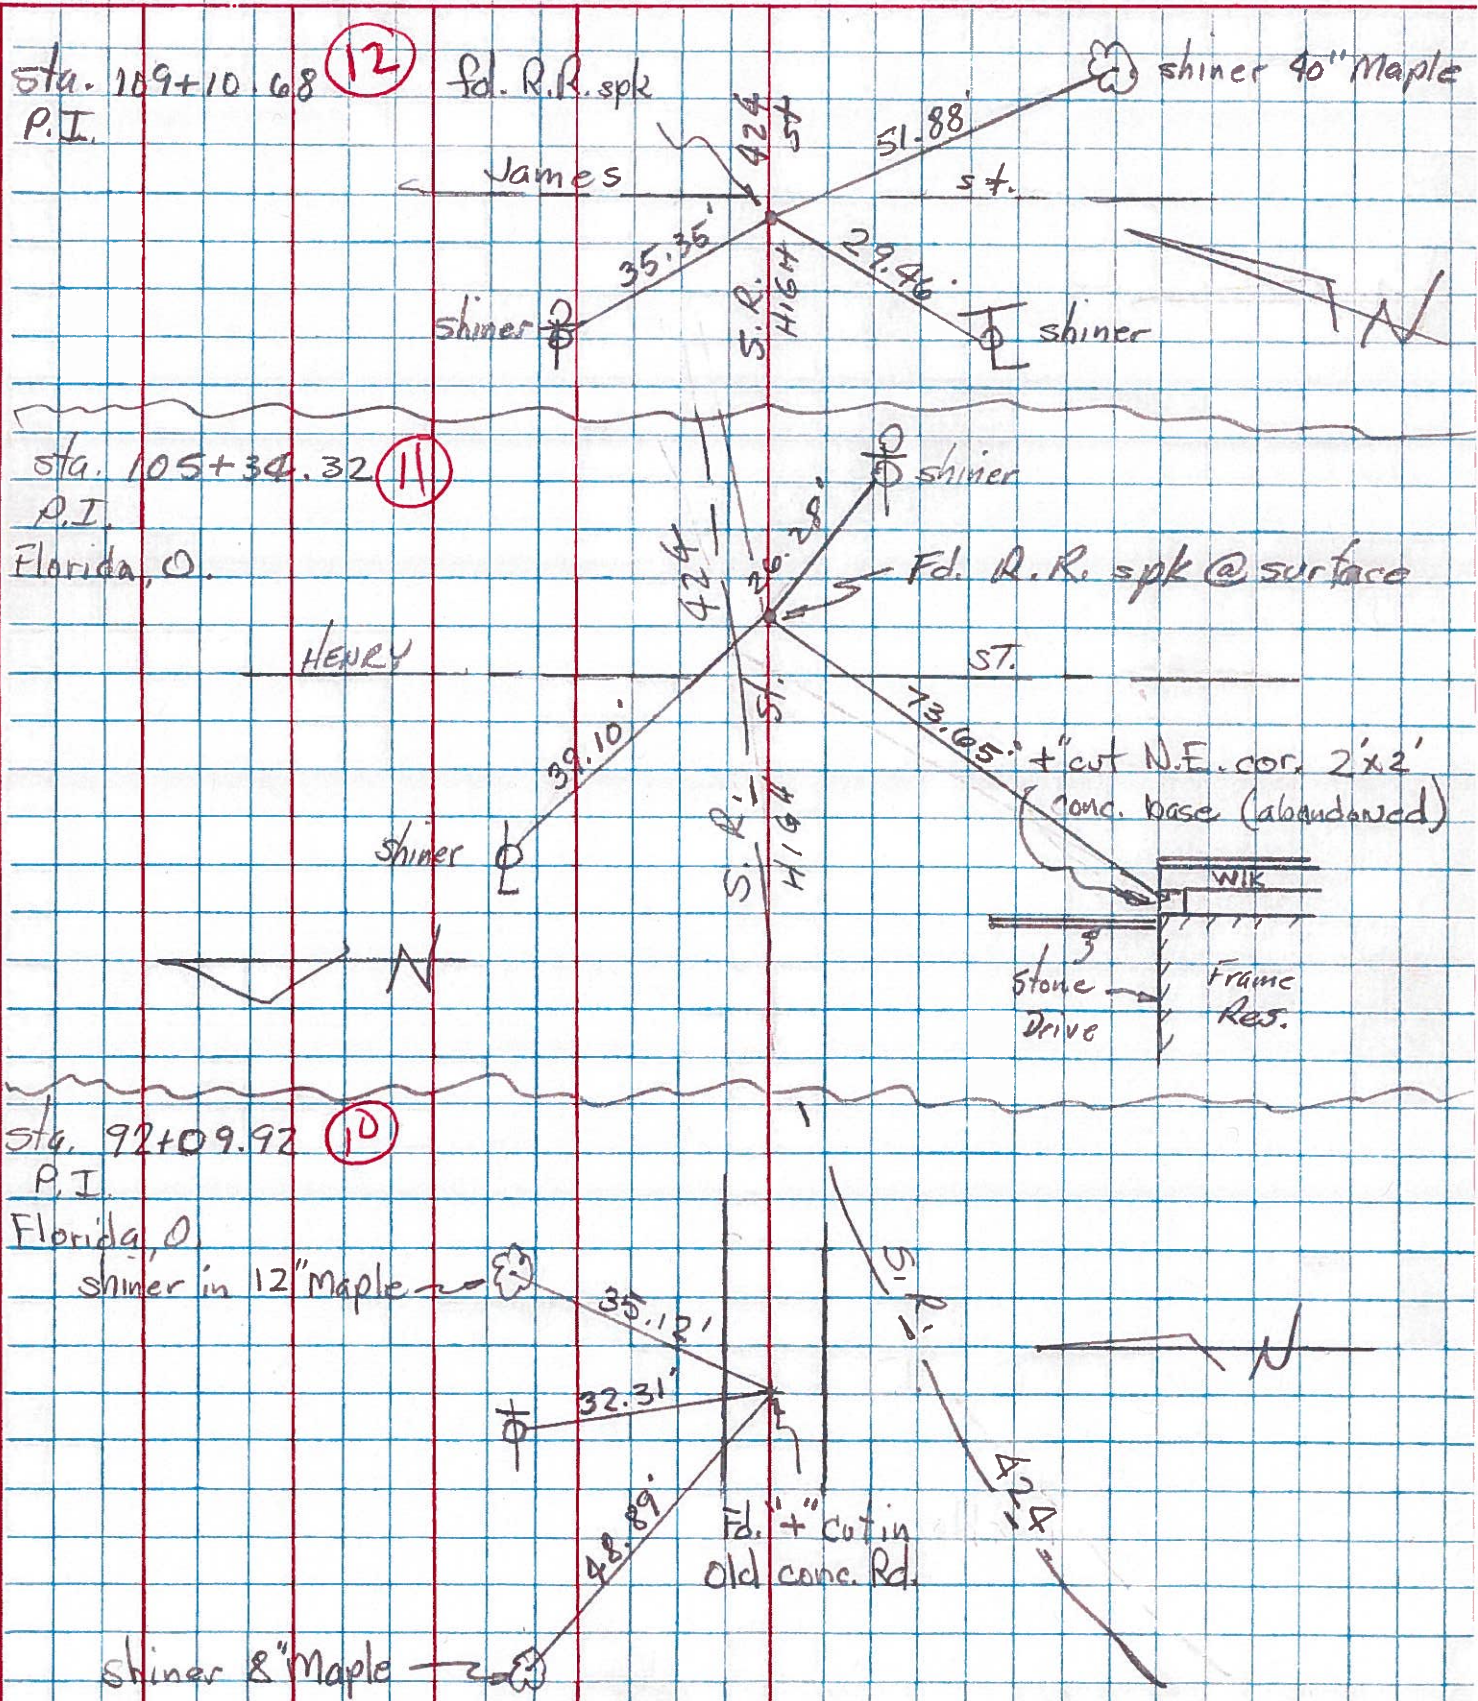 sta. 109+10.68 (12) fd. R.R. spk
P.I.
shiner 40" Maple
424
st
51.88'
James st.
35.35'
29.46'
shiner
S.R.
HIGH
shiner
N
sta. 105+34.32 (11)
P.I.
Florida, O.
shiner
26.28'
424
Fd. R.R. spk @ surface
HENRY ST.
39.10'
73.65'
St.
"+" cut N.E. cor. 2'x2'
conc. base (abandoned)
shiner
S.R.
HIGH
W/K
N
Stone
Drive
Frame
Res.
sta. 92+09.92 (10)
P.I.
Florida, O.
shiner in 12" Maple
35.12'
S.R.
N
32.31'
48.89'
424
Fd. "+" cut in
Old conc. Rd.
shiner 8" Maple